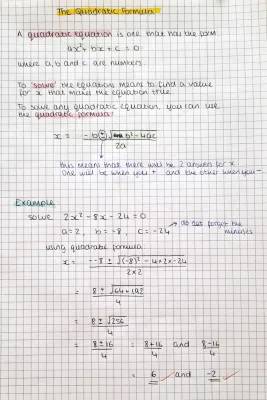 The Quadratic Formula
A quadratic equation is one that has the form
ax² + bx + c = 0
where a, b and c are numbers.
To 'solve' the equation means to find a value
for x that makes the equation true.
To solve any quadratic equation, you can use
the quadratic formula:
x = -b ± √b² - 4ac / 2a
this means that there will be 2 answers for x.
One will be when you + and the other when you -
Example
solve 2x² - 8x - 24 = 0
a = 2, b = -8, c = -24 → do not forget the
minuses
using quadratic formula
x = --8 ± √(-8)² - 4×2×-24 / 2×2
= 8 ± √64+192 / 4
= 8 ± √256 / 4
= 8 ± 16 / 4 = 8+16 / 4 and 8-16 / 4
= 6 ✓ and -2 ✓